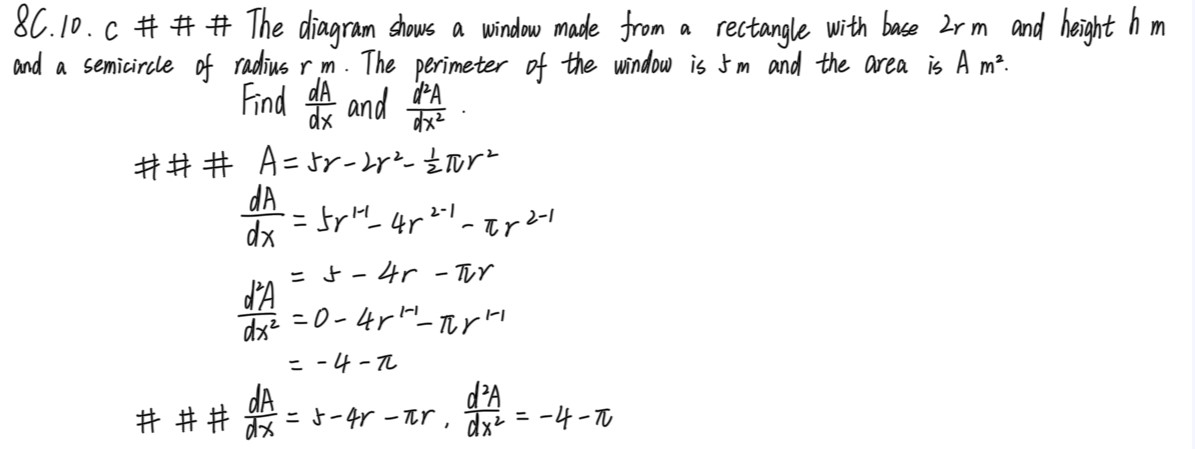 8C.10. c # # # The diagram shows a window made from a rectangle with base 2r m and height h m
and a semicircle of radius r m. The perimeter of the window is 5 m and the area is A m².
Find dA/dx and d²A/dx².
# # # A = 5r - 2r² - ½πr²
dA/dx = 5r¹⁻¹ - 4r²⁻¹ - πr²⁻¹
= 5 - 4r - πr
d²A/dx² = 0 - 4r¹⁻¹ - πr¹⁻¹
= -4 - π
# # # dA/dx = 5 - 4r - πr, d²A/dx² = -4 - π